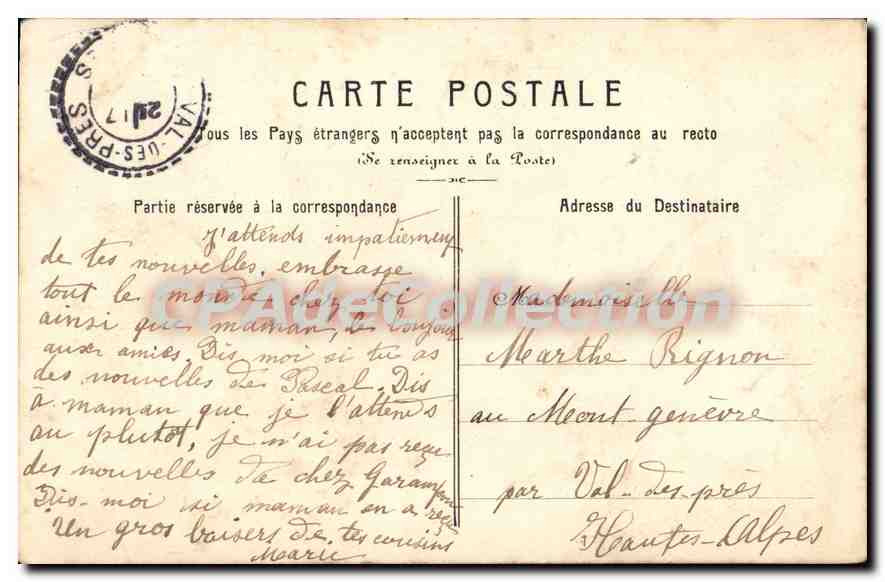 VAL-DES-PRÉS
CARTE POSTALE
Tous les Pays étrangers n'acceptent pas la correspondance au recto
(Se renseigner à la Poste)
Partie réservée à la correspondance
J'attends impatiemen
de tes nouvelles, embrasse
tout le monde chez toi
ainsi que maman, le bonjour
aux amies. Dis moi si tu as
des nouvelles de Pascal. Dis
à maman que je l'attends
au plutôt, je n'ai pas reçu
des nouvelles de chez
Dis-moi si maman en a reçu
Un gros baisers de tes cousins
Marie
Adresse du Destinataire
Mademoiselle
Marthe Rignon
au Mont genèvre
par Val-des-près
Hautes-Alpes
CPAdeCollection